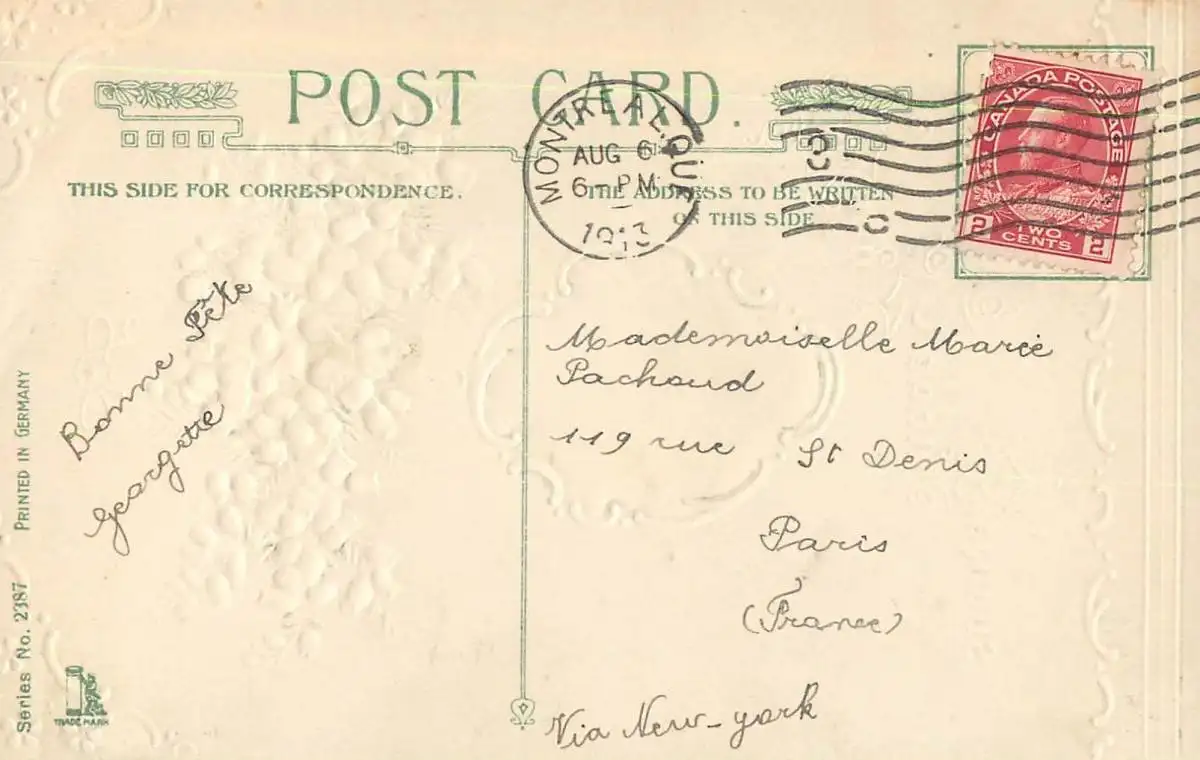 POST CARD.
MONTREAL, QUE.
AUG 6
6 - PM
1913
CANADA POSTAGE
2 TWO CENTS 2
THIS SIDE FOR CORRESPONDENCE.
THE ADDRESS TO BE WRITTEN
ON THIS SIDE
Bonne Fête
Georgette
Mademoiselle Marie
Pachoud
119 rue St Denis
Paris
(France)
Via New-york
Series No. 2387 PRINTED IN GERMANY
TRADE MARK